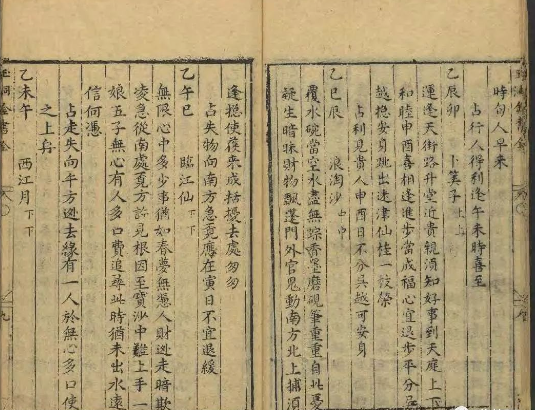 時句人早來
占行人得利逢午未時喜至
乙辰卯 卜算子 上上
運逢天街路升堂近貴親須知好事到天庭上下
和睦申酉喜相逢進步當成福心宜退步平分
越穩安身跳出迷津仙桂一枝榮
占利見貴人申酉日不分吳越可安身
乙巳辰 浪淘沙 中中
覆水碗當空水盡無踪香墨磨硯筆重重自此憂
疑生暗昧財物飄蓬門外官鬼動南方北上擄須
逢摠使喪來成擾去處匆匆
占失物向南方急覓應在寅日不宜退緩
乙午巳 臨江仙 下下
無限心中多少事猶如春夢無憑人財迯走暗欺
凌急從南處覓方許見根因至寶沙中難上手一
娘五子無心有人多口費追尋此時猶未出水遠
信何憑
占走失向午方迯去緣有一人於無心多口使
之上舟
乙未午 西江月 下下